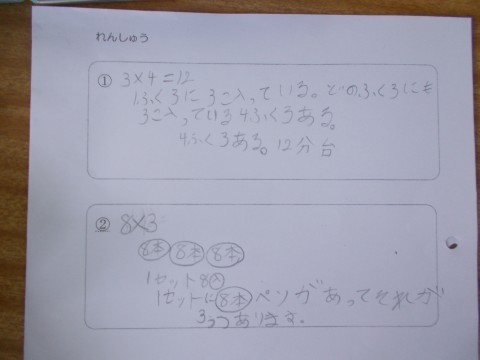 れんしゅう
① 3×4=12
1ふくろに3こ入っている。どのふくろにも
3こ入っている4ふくろある。
4ふくろある。12分台
② 8×3
8本 8本 8本
1セット8入
1セットに8本ペンがあってそれが
3つあります。